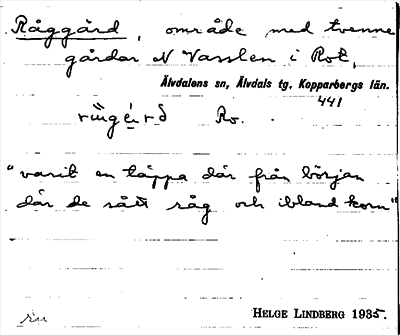 Råggård, område med tvenne
gårdar N Vasslen i Rot,
Älvdalens sn, Älvdals tg. Kopparbergs län.
441
Ro.
"varit en täppa där från början
där de sått råg och ibland korn"
HELGE LINDBERG 1935.